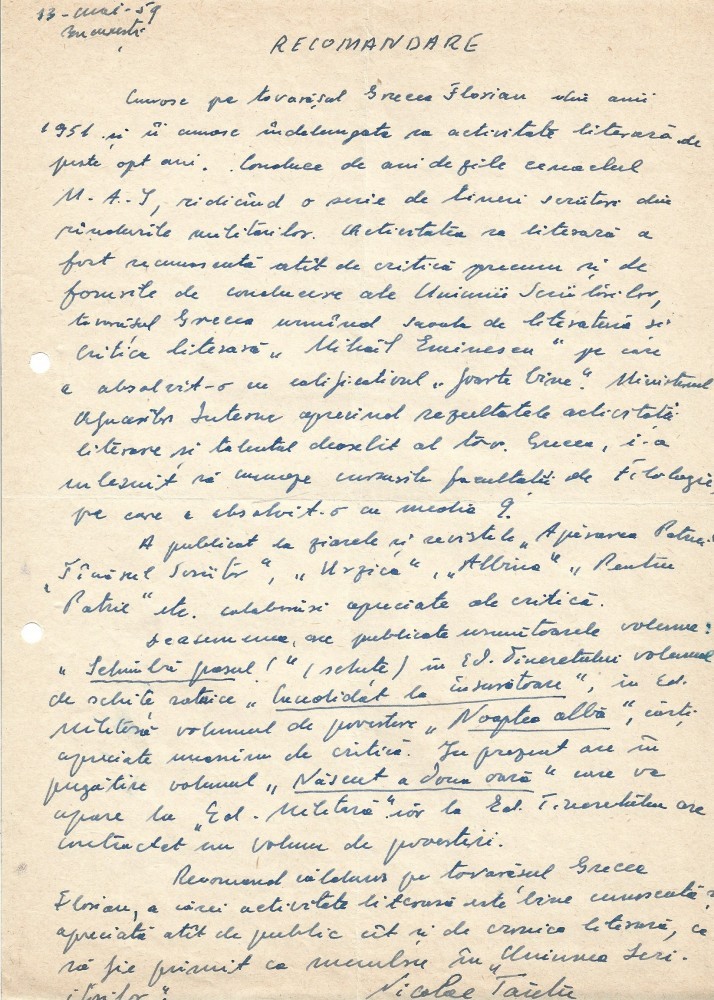 13-mai-59
București
RECOMANDARE
Cunosc pe tovarășul Grecea Florian din anii
1951 și îi cunosc îndelungata sa activitate literară de
peste opt ani. Conduce de ani de zile cenaclul
M.A.I, ridicînd o serie de tineri scriitori din
rîndurile militarilor. Activitatea sa literară a
fost recunoscută atît de critică precum și de
forurile de conducere ale Uniunii Scriitorilor,
tovarășul Grecea urmînd școala de literatură și
critica literară „Mihail Eminescu" pe care
a absolvit-o cu calificativul „foarte bine". Ministerul
Afacerilor Interne apreciind rezultatele activității
literare și talentul deosebit al tov. Grecea, i-a
înlesnit să urmeze cursurile facultății de Filologie,
pe care a absolvit-o cu media 9.
A publicat la ziarele și revistele „Apărarea Patriei"
„Tînărul Scriitor", „Urzica", „Albina", „Pentru
Patrie" etc. colaborări apreciate de critică.
Deasemenea, are publicate următoarele volume:
„Schimbă pasul!" (schite) în Ed. Tineretului volumul
de schite satirice „Candidat la însurătoare", în Ed.
Militară volumul de povestire „Noaptea albă", cărți
apreciate unanim de critică. In prezent are în
pregătire volumul „Născut a doua oară" care va
apare la „Ed. Militară" iar la Ed. Tineretului are
contractat un volum de povestiri.
Recomand călduros pe tovarășul Grecea
Florian, a cărei activitate literară este bine cunoscută și
apreciată atît de public cît și de cronica literară, ca
să fie primit ca membru în „Uniunea Scri-
itorilor".
Nicolae Tăutu